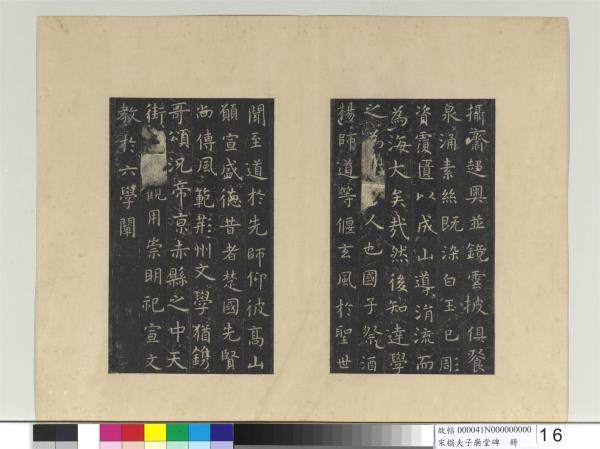 攝齋趨奧並鏡雲披俱餐
泉涌素絲既染白玉已彫
資覆匱以成山導涓流而
為海大矣哉然後知達學
之為
人也國子祭酒
楊師道等偃玄風於聖世
聞至道於先師仰彼高山
願宣盛德昔者楚國先賢
尚傳風範荊州文學猶鐫
哥頌況帝京赤縣之中天
街
觀用崇明祀宣文
教於六學闡
故帖 000041N000000000
宋榻夫子廟堂碑 冊
16